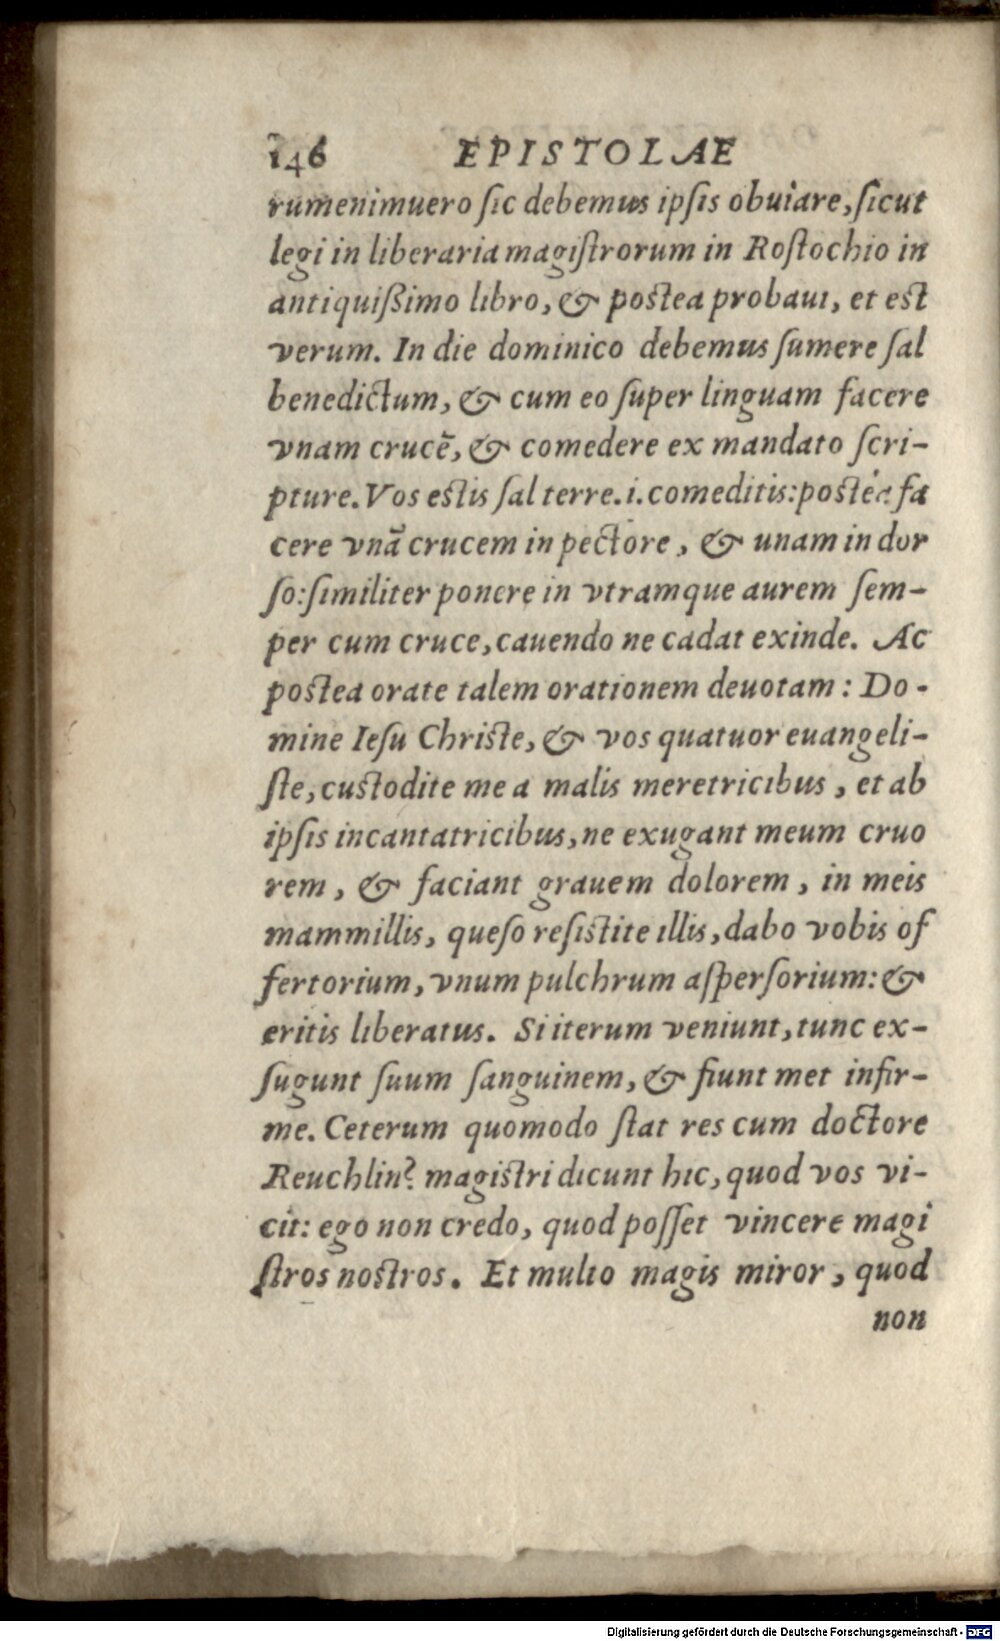 146 EPISTOLAE
rumenimuero ſic debemus ipſis obuiare, ſicut
legi in liberaria magiſtrorum in Roſtochio in
antiquiſßimo libro, & poſtea probaui, et eſt
verum. In die dominico debemus ſumere ſal
benedictum, & cum eo ſuper linguam facere
vnam crucē, & comedere ex mandato ſcri-
pture. Vos eſtis ſal terre. i. comeditis: poſtea fa
cere vnā crucem in pectore, & unam in dor
ſo: ſimiliter ponere in vtramque aurem ſem-
per cum cruce, cauendo ne cadat exinde. Ac
poſtea orate talem orationem deuotam: Do-
mine Ieſu Chriſte, & vos quatuor euangeli-
ſte, cuſtodite me a malis meretricibus, et ab
ipſis incantatricibus, ne exugant meum cruo
rem, & faciant grauem dolorem, in meis
mammillis, queſo reſiſtite illis, dabo vobis of
fertorium, vnum pulchrum aſperſorium: &
eritis liberatus. Si iterum veniunt, tunc ex-
ſugunt ſuum ſanguinem, & fiunt met infir-
me. Ceterum quomodo ſtat res cum doctore
Reuchlin? magiſtri dicunt hic, quod vos vi-
cit: ego non credo, quod poſſet vincere magi
ſtros noſtros. Et multo magis miror, quod
non
Digitalisierung gefördert durch die Deutsche Forschungsgemeinschaft - DFG